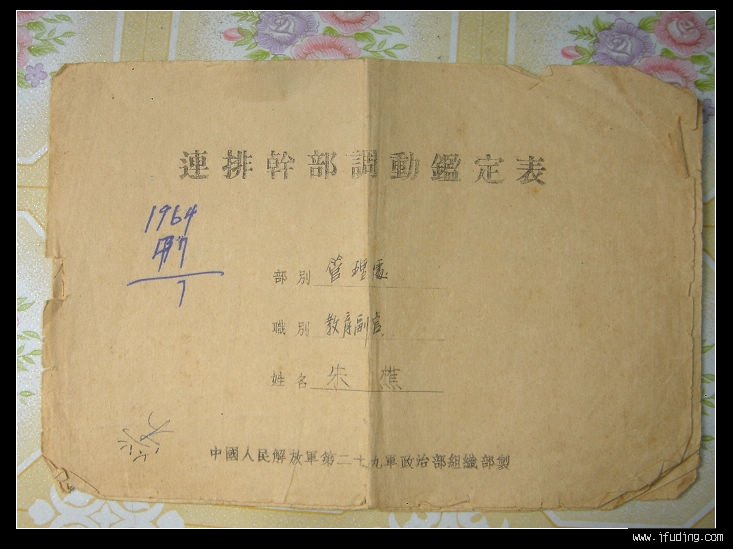 連排幹部調動鑑定表
1964
7
部別 管理處
職別 教育副官
姓名 朱蕉
中國人民解放軍第二十九軍政治部組織部製
www.ifuding.com